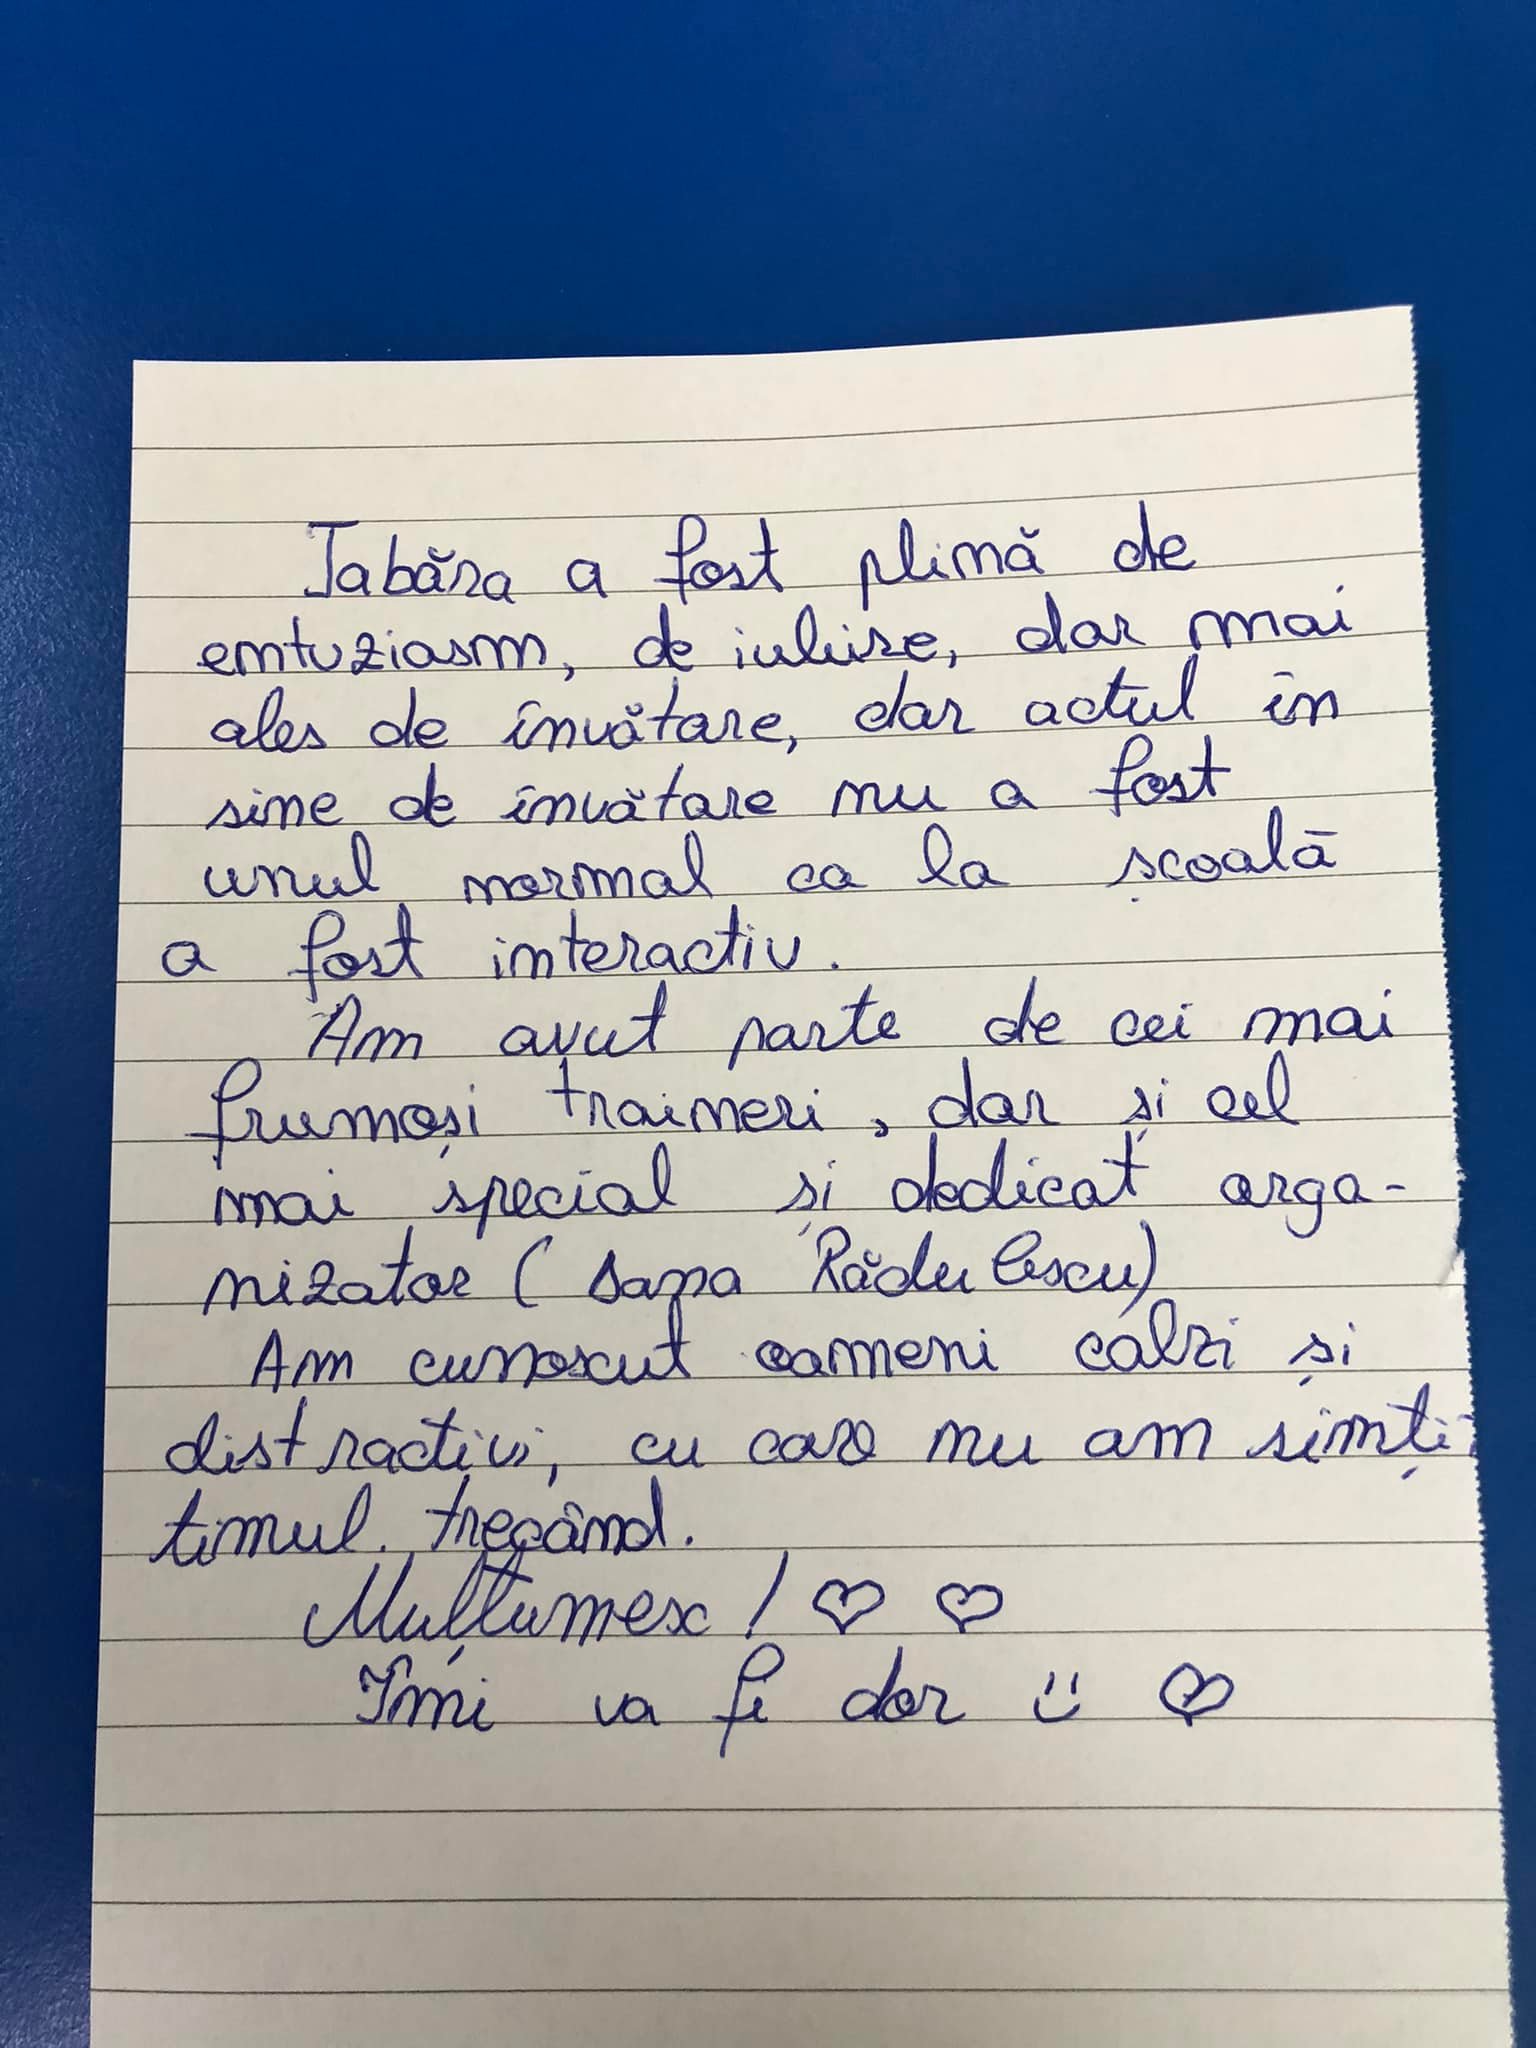 Tabăra a fost plină de
entuziasm, de iubire, dar mai
ales de învătare, dar actul în
sine de învătare nu a fost
unul normal ca la școală
a fost interactiv.
Am avut parte de cei mai
frumoși traineri, dar și cel
mai special și dedicat orga-
nizator ( Dana Rădulescu)
Am cunoscut oameni calzi și
distractivi, cu care nu am simți
timul trecând.
Mulțumesc! ♡ ♡
Îmi va fi dor :) ♡